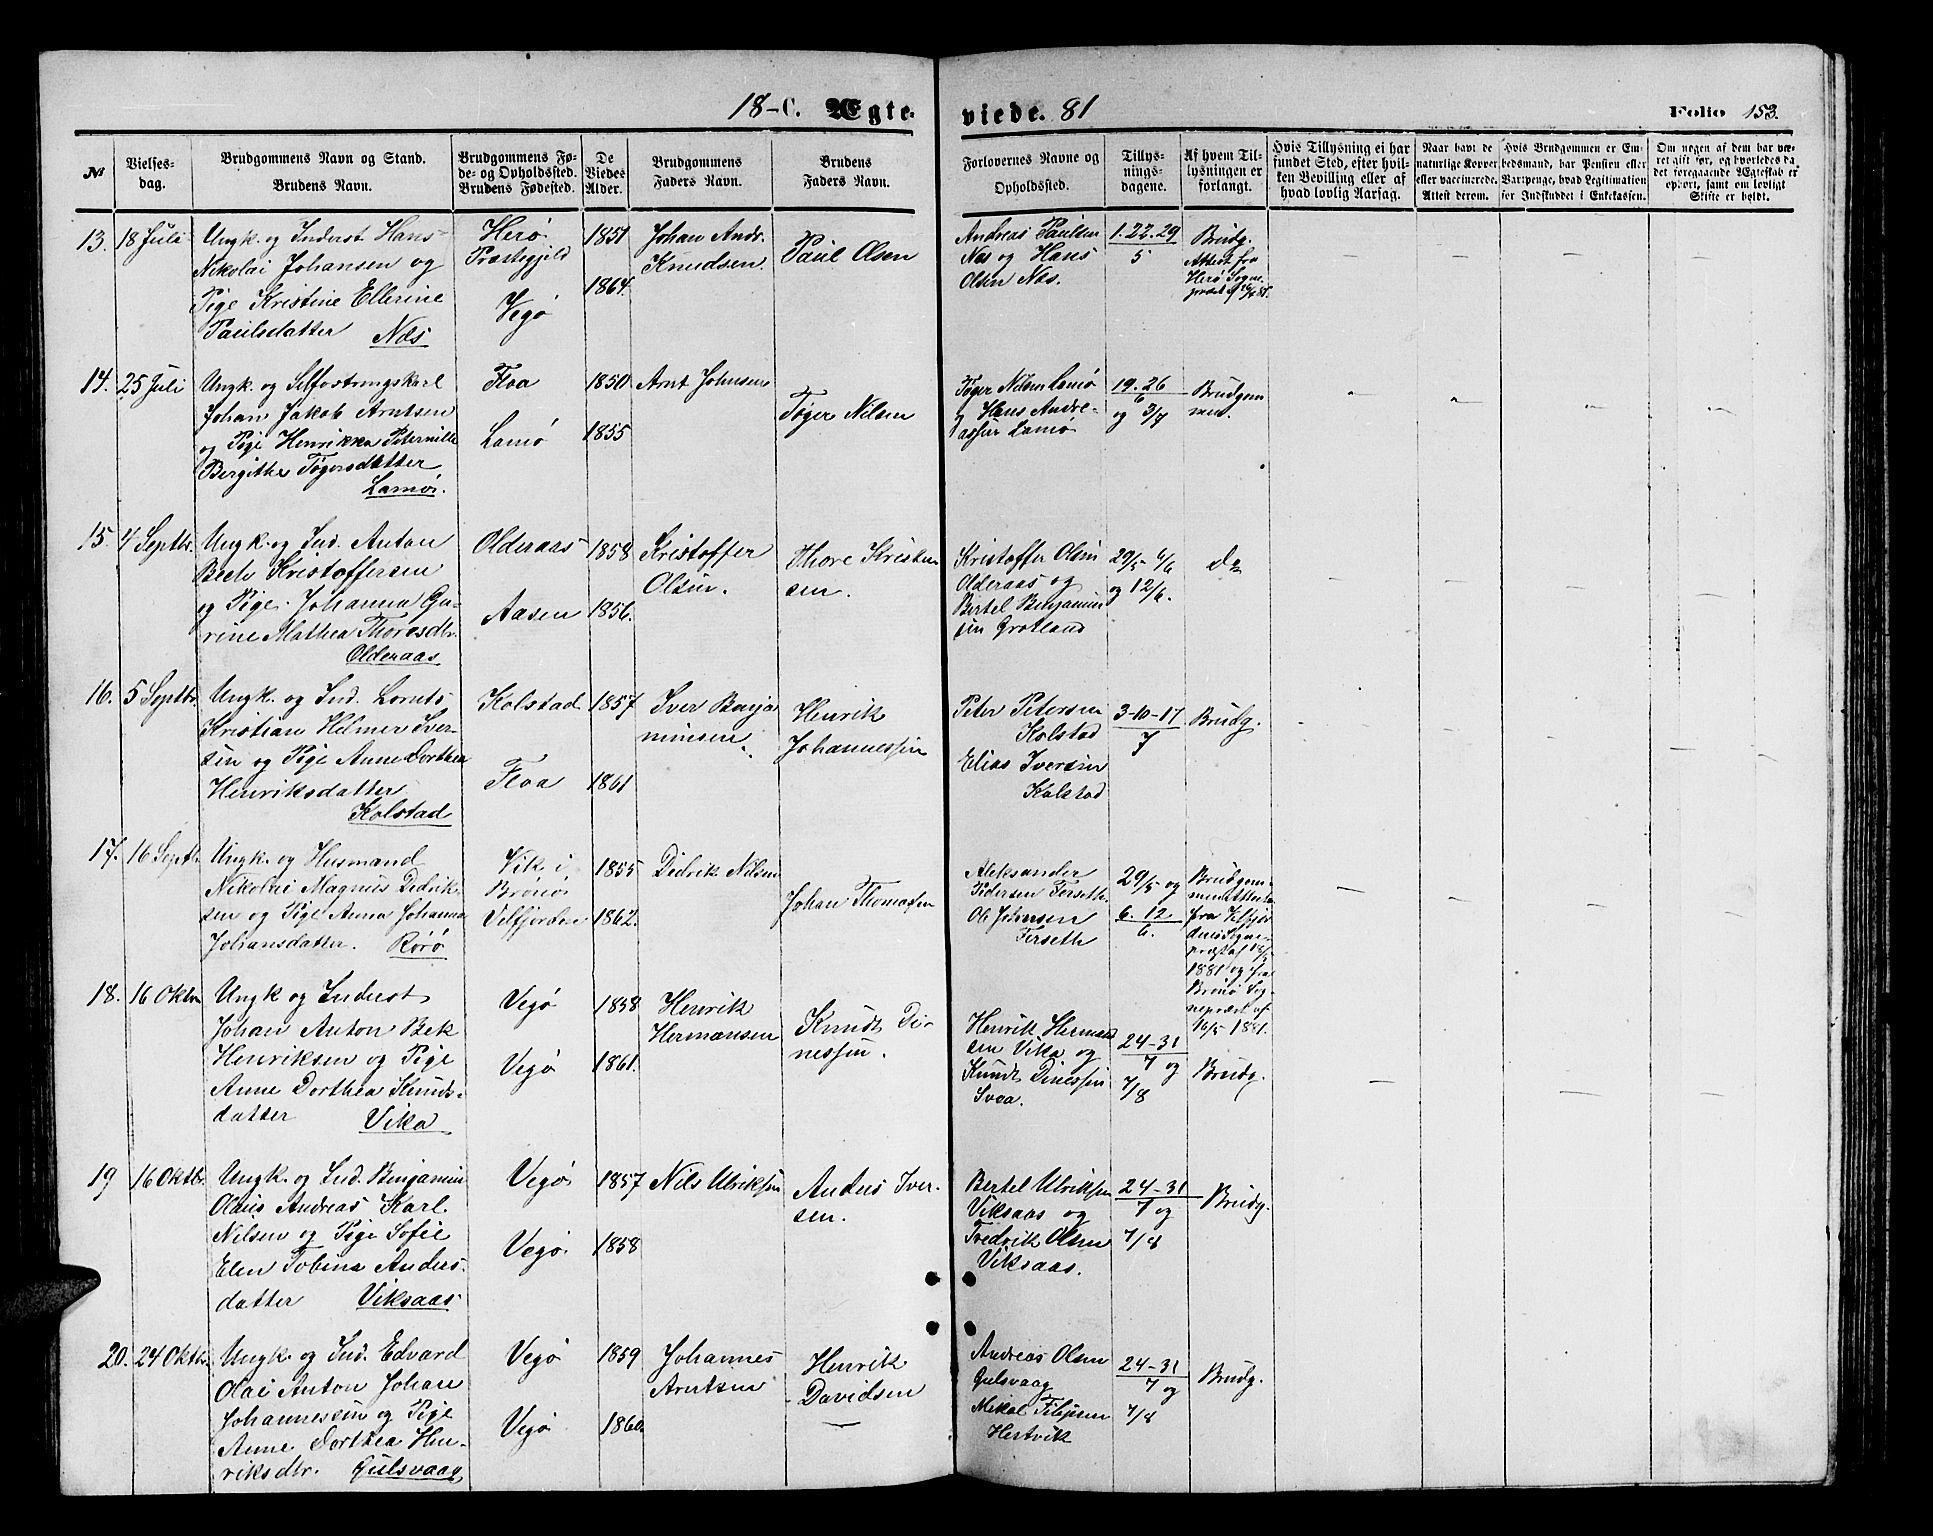 18-C. Ægteviede. 81
Folio 153.
№
Vielses-
dag.
Brudgommens Navn og Stand.
Brudens Navn.
Brudgommens Fø-
de- og Opholdsted.
Brudens Fødested.
De
Viedes
Alder.
Brudgommens
Faders Navn.
Brudens
Faders Navn.
Forlovernes Navne og
Opholdsted.
Tillys-
nings-
dagene.
Af hvem Til-
lysningen er
forlangt.
Hvis Tillysning ei har
fundet Sted, efter hvil-
ken Bevilling eller af
hvad lovlig Aarsag.
Naar havt de
naturlige Kopper
eller vaccinerede.
Attest derom.
Hvis Brudgommen er Em-
bedsmand, har Pension eller
Vartpenge, hvad Legitimation
for Indskuddet i Enkekassen.
Om nogen af dem har væ-
ret gift før, og hvorledes da
det foregaaende Ægteskab er
ophørt, samt om lovligt
Skifte er holdt.
13. 18 Juli
Ungk. og Inderst Hans
Nikolai Johansen og
Pige Kristine Ellerine
Paulsdatter Næs
Herø
Præstegjeld
Vegø
1851
1864.
Johan Andr.
Knudsen.
Paul Olsen
Andreas Paulsen
Næs og Hans
Olsen Næs.
1. 22. 29
5
Brudg.
Attest fra
Herø Sogne-
14. 25 Juli
Ungk. og Selfostringskarl
Johan Jakob Arntsen
og Pige Henrikka Peternille
Bergithe Tøgersdatter
Lamøi.
Floa
Lamø
1850
1855
Arnt Johnsen
Tøger Nilsen
Tøger Nilsen Lamø
og Hans Andre-
assen Lamø
19. 26
6
og 3/7
Brudgom
men.
15. 4 Septbr.
Ungk. og Ind. Anton
Bech Kristoffersen
og Pige Johanna Gu-
rine Mathea Thoresdtr.
Olderaas
Olderaas
Aasen
1858
1856.
Kristoffer
Olsen.
Thore Kristen
sen.
Kristoffer Olsen
Olderaas og
Bertel Benjamin
sen Grotland
29/5 6/6
og 12/6.
Do
16. 5 Septbr.
Ungk. og Ind. Lorents
Kristian Helmer Iver-
sen og Pige Anne Dorthea
Henriksdatter
Kolstad
Kolstad
Floa
1857
1861
Iver Benja
minsen
Henrik
Johannessen
Peter Petersen
Kolstad
Elias Iversen
Kolstad
3-10-17
7
Brudg.
17. 16 Septbr.
Ungk. og Husmand
Nikolai Magnus Didrik-
sen og Pige Anna Johanna
Johansdatter. Rørø
Vik i
Brønø
Velfjorden
1855
1862.
Didrik Nilsen
Johan Thomassen
Aleksander
Pedersen Forseth
Ole Johnsen
Forseth
29/5 og
6. 12.
6.
Brudgom-
men Attest
fra Velfjor
dens Sogne-
præst af
1881 og fra
Brønø Sog-
nepræst af
16/5 1881.
18. 16 Oktbr
Ungk og Inderst
Johan Anton Bek
Henriksen og Pige
Anne Dorthea Knuds-
datter Vika
Vegø
Vegø
1858
1861.
Henrik
Hermansen
Knudt Di-
nessen.
Henrik Herman
sen Vika og
Knudt Dinessen
Svaa.
24-31
7 og
7/8
Brudg.
19 16 Oktbr.
Ungk. og Ind. Benjamin
Olaus Andreas Karl.
Nilsen og Pige Sofie
Elen Tobine Anders-
datter Viksaas
Vegø
Vegø
1857
1858
Nils Ulriksen
Anders Iver-
sen.
Bertel Ulriksen
Viksaas og
Fredrik Olsen
Viksaas.
24-31
7 og
7/8
Brudg.
20. 24 Oktbr.
Ungk. og Ind. Edvard
Olai Anton Johan
Johannessen og Pige
Anne Dorthea Hen-
riksdtr. Gulsvaag
Vegø
Vegø
1859
1860.
Johannes
Arntsen
Henrik
Davidsen
Andreas Olsen
Gulsvaag
Mikal Filipsen
Hestvik
24-31
7 og
7/8
Brudg.